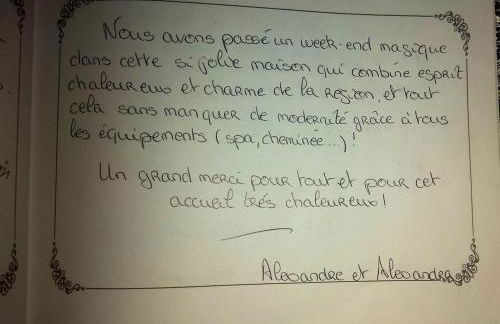 Nous avons passé un week-end magique
dans cette si jolie maison qui combine esprit
chaleureux et charme de la region, et tout
cela sans manquer de modernité grâce à tous
les équipements (spa, cheminée...)!
Un grand merci pour tout et pour cet
accueil trés chaleureux!
Alexandre et Alexandra